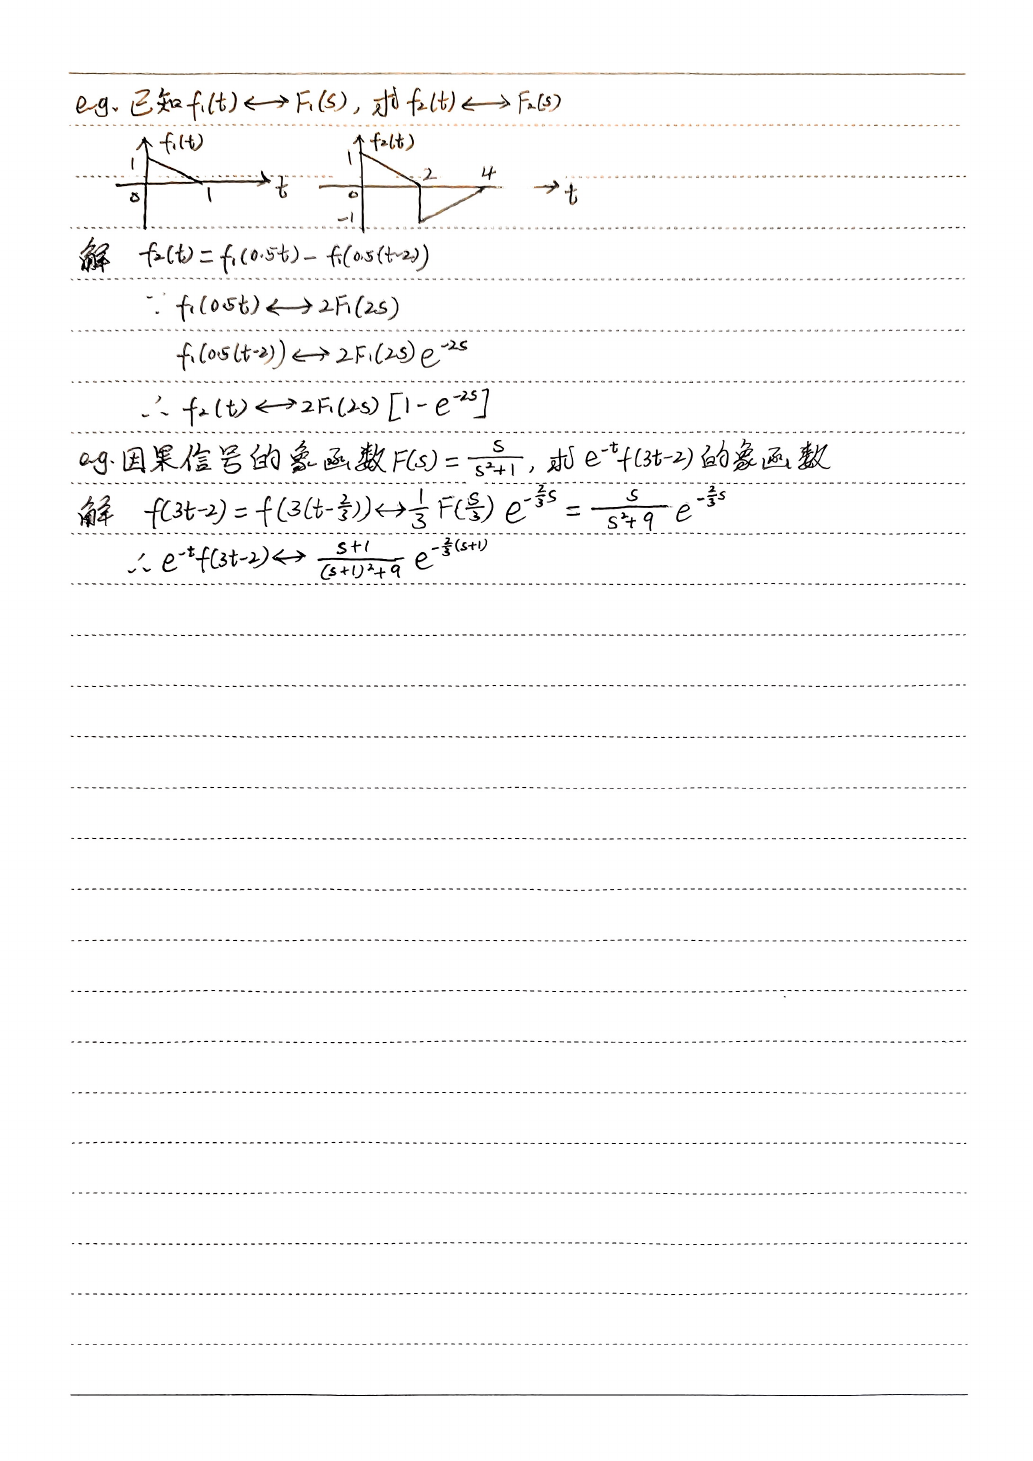 e.g. 已知 f₁(t)↔F₁(s), 求 f₂(t)↔F₂(s)
f₁(t) f₂(t)
1 1 2 4
0 1 t 0 t
-1
解 f₂(t)=f₁(0.5t)-f₁(0.5(t-2))
∵ f₁(0.5t)↔2F₁(2s)
f₁(0.5(t-2))↔2F₁(2s)e^{-2s}
∴ f₂(t)↔2F₁(2s)[1-e^{-2s}]
e.g. 因果信号的象函数F(s)=\frac{s}{s²+1}, 求 e^{-t}f(3t-2)的象函数
解 f(3t-2)=f(3(t-\frac{2}{3}))↔\frac{1}{3}F(\frac{s}{3})e^{-\frac{2}{3}s}=\frac{s}{s²+9}e^{-\frac{2}{3}s}
∴ e^{-t}f(3t-2)↔\frac{s+1}{(s+1)²+9}e^{-\frac{2}{3}(s+1)}